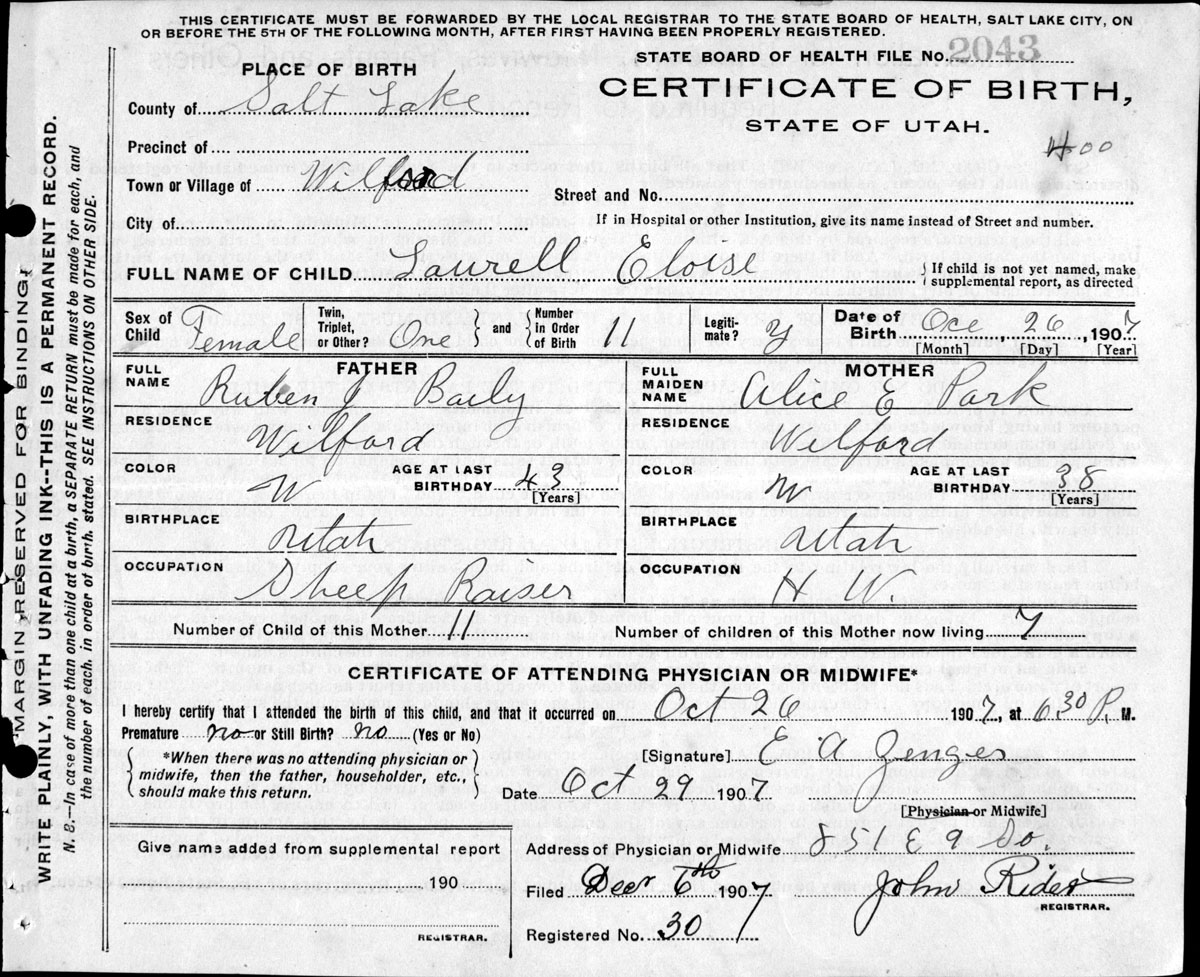 THIS CERTIFICATE MUST BE FORWARDED BY THE LOCAL REGISTRAR TO THE STATE BOARD OF HEALTH, SALT LAKE CITY, ON
OR BEFORE THE 5TH OF THE FOLLOWING MONTH, AFTER FIRST HAVING BEEN PROPERLY REGISTERED.
STATE BOARD OF HEALTH FILE No. 2043
PLACE OF BIRTH
CERTIFICATE OF BIRTH,
County of Salt Lake
STATE OF UTAH.
400
Precinct of
Town or Village of Wilford
Street and No.
City of
If in Hospital or other Institution, give its name instead of Street and number.
FULL NAME OF CHILD Laurell Eloise
{ If child is not yet named, make supplemental report, as directed
Sex of Child Female
Twin, Triplet, or Other? One
{ and } Number in Order of Birth 11
Legitimate? y
Date of Birth Oct 26 1907
[Month] [Day] [Year]
FATHER
FULL NAME Ruben J Baily
RESIDENCE Wilford
COLOR W
AGE AT LAST BIRTHDAY 43 [Years]
BIRTHPLACE Utah
OCCUPATION Sheep Raiser
MOTHER
FULL MAIDEN NAME Alice E Park
RESIDENCE Wilford
COLOR W
AGE AT LAST BIRTHDAY 38 [Years]
BIRTHPLACE Utah
OCCUPATION H. W.
Number of Child of this Mother 11
Number of children of this Mother now living 7
CERTIFICATE OF ATTENDING PHYSICIAN OR MIDWIFE*
I hereby certify that I attended the birth of this child, and that it occurred on Oct 26 1907, at 6.30 P. M.
Premature no or Still Birth? no (Yes or No)
{ *When there was no attending physician or midwife, then the father, householder, etc., should make this return. }
[Signature] E A Zenger
Date Oct 29 1907
[Physician or Midwife]
Give name added from supplemental report
190
REGISTRAR.
Address of Physician or Midwife 851 E 9 So.
Filed Decr 6th 1907
John Rider
REGISTRAR.
Registered No. 30
MARGIN RESERVED FOR BINDING
WRITE PLAINLY, WITH UNFADING INK--THIS IS A PERMANENT RECORD.
N. B.--In case of more than one child at a birth, a SEPARATE RETURN must be made for each, and
the number of each, in order of birth, stated. SEE INSTRUCTIONS ON OTHER SIDE.